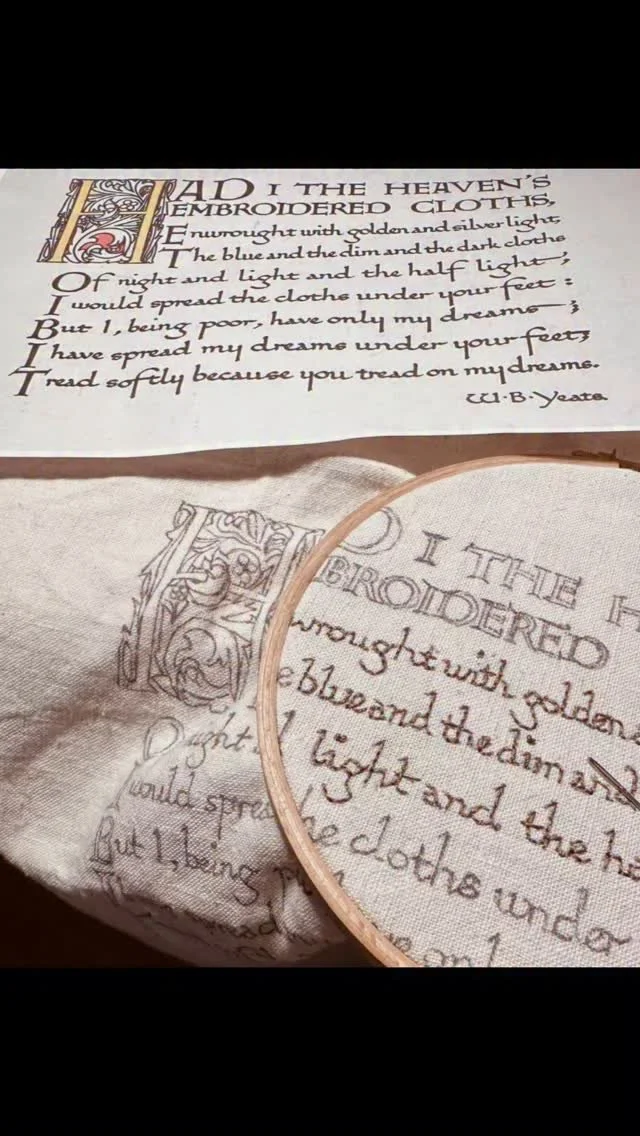 HAD I THE HEAVEN'S
EMBROIDERED CLOTHS,
Enwrought with golden and silver light,
The blue and the dim and the dark cloths
Of night and light and the half light;
I would spread the cloths under your feet:
But I, being poor, have only my dreams;
I have spread my dreams under your feet;
Tread softly because you tread on my dreams.
W·B·Yeats
D I THE H
BROIDERED
wrought with golden
e blue and the dim and
light and the ha
I would sprea he cloths under
But I, being